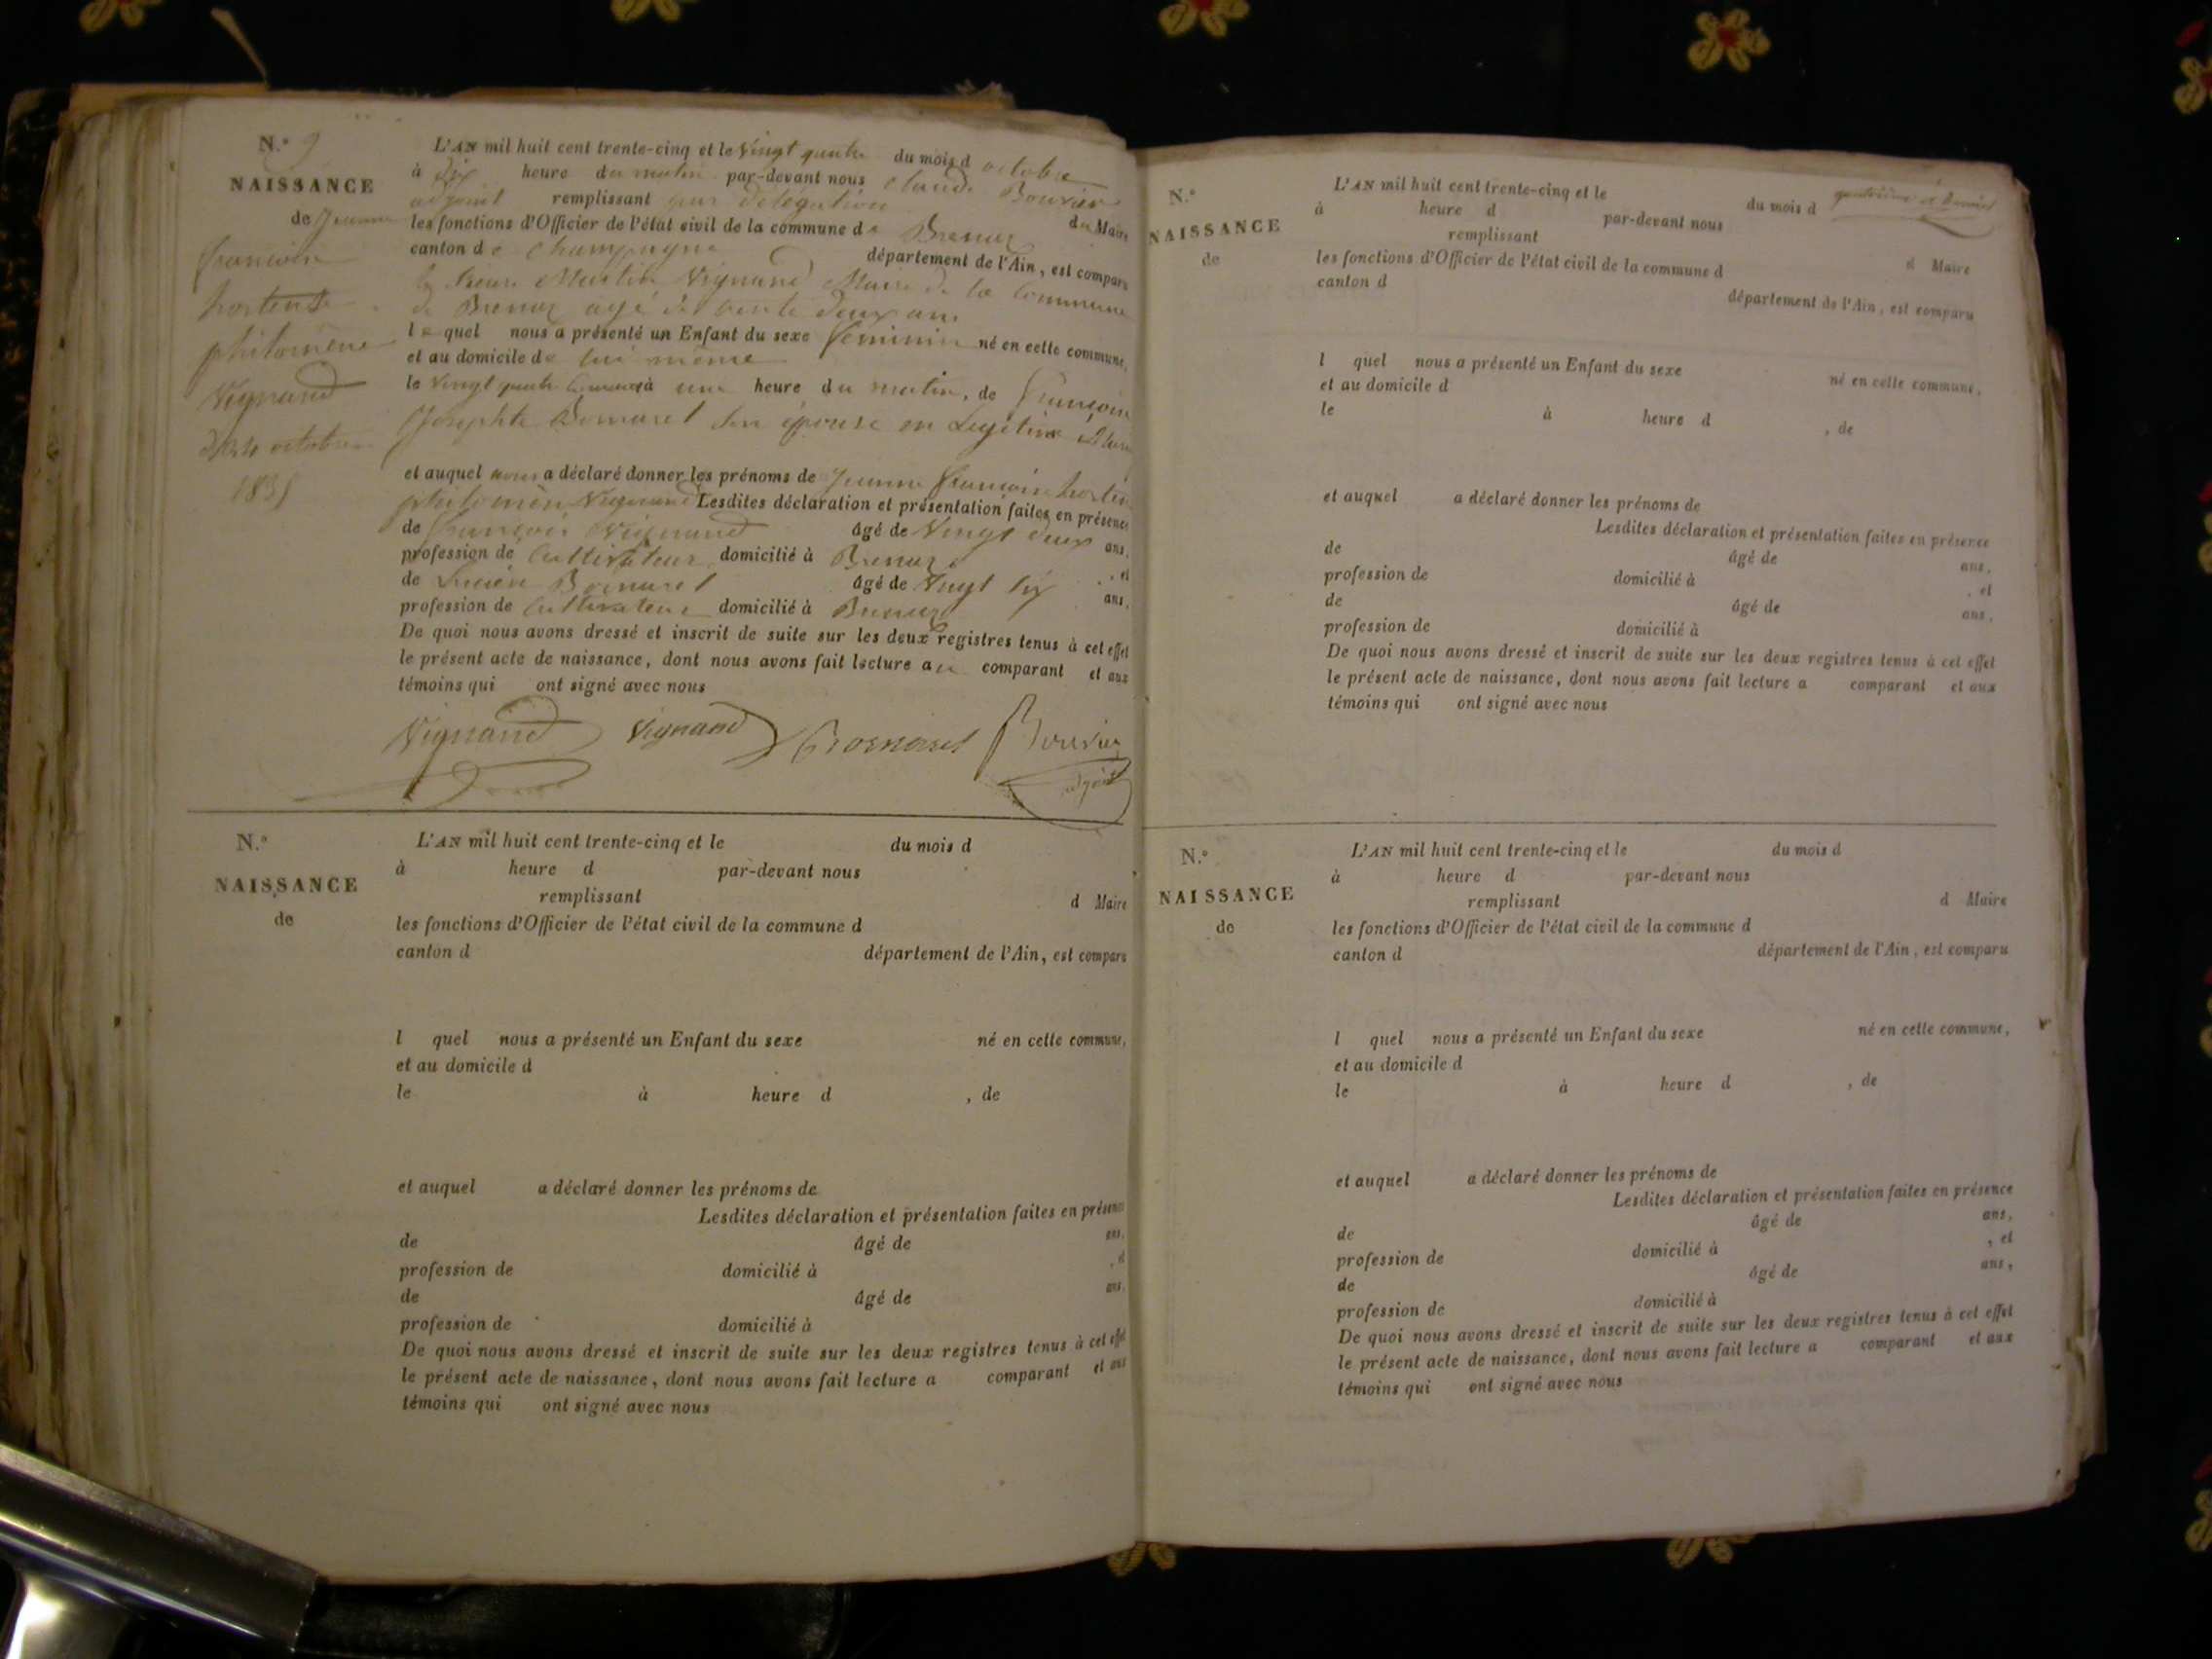 N.° 9
NAISSANCE
de Jeanne
françoise
hortense
philomène
Vignand
du 24 octobre
1835
L'AN mil huit cent trente-cinq et le Vingt quatre du mois d octobre
à dix heure du matin par-devant nous Claude Bouvier
adjoint remplissant par délégation du Maire
les fonctions d'Officier de l'état civil de la commune de Brenaz
canton de Champagne département de l'Ain, est comparu
le sieur Martin Vignand Maire de la Commune
de Brenaz agé de trente deux ans
lequel nous a présenté un Enfant du sexe féminin né en cette commune,
et au domicile de lui même
le Vingt quatre à une heure du matin, de françoise
Josephte Bornarel son épouse en Legitime
et auquel nous a déclaré donner les prénoms de Jeanne françoise hortense
philomène Vignand Lesdites déclaration et présentation faites en présence
de françois Vignand âgé de Vingt deux ans,
profession de Cultivateur domicilié à Brenaz, et
de Bornarel âgé de Vingt six ans,
profession de Cultivateur domicilié à Brenaz
De quoi nous avons dressé et inscrit de suite sur les deux registres tenus à cet effet
le présent acte de naissance, dont nous avons fait lecture au comparant et aux
témoins qui ont signé avec nous
Vignand Vignand Bornarel Bouvier
adjoint
N.°
NAISSANCE
de
L'AN mil huit cent trente-cinq et le du mois d
à heure d par-devant nous
remplissant d Maire
les fonctions d'Officier de l'état civil de la commune d
canton d département de l'Ain, est comparu
l quel nous a présenté un Enfant du sexe né en cette commune,
et au domicile d
le à heure d , de
et auquel a déclaré donner les prénoms de
Lesdites déclaration et présentation faites en présence
de âgé de ans,
profession de domicilié à , et
de âgé de ans,
profession de domicilié à
De quoi nous avons dressé et inscrit de suite sur les deux registres tenus à cet effet
le présent acte de naissance, dont nous avons fait lecture a comparant et aux
témoins qui ont signé avec nous
N.°
NAISSANCE
de
L'AN mil huit cent trente-cinq et le du mois d
à heure d par-devant nous
remplissant d Maire
les fonctions d'Officier de l'état civil de la commune d
canton d département de l'Ain, est comparu
l quel nous a présenté un Enfant du sexe né en cette commune,
et au domicile d
le à heure d , de
et auquel a déclaré donner les prénoms de
Lesdites déclaration et présentation faites en présence
de âgé de ans,
profession de domicilié à , et
de âgé de ans,
profession de domicilié à
De quoi nous avons dressé et inscrit de suite sur les deux registres tenus à cet effet
le présent acte de naissance, dont nous avons fait lecture a comparant et aux
témoins qui ont signé avec nous
N.°
NAISSANCE
de
L'AN mil huit cent trente-cinq et le du mois d
à heure d par-devant nous
remplissant d Maire
les fonctions d'Officier de l'état civil de la commune d
canton d département de l'Ain, est comparu
l quel nous a présenté un Enfant du sexe né en cette commune,
et au domicile d
le à heure d , de
et auquel a déclaré donner les prénoms de
Lesdites déclaration et présentation faites en présence
de âgé de ans,
profession de domicilié à , et
de âgé de ans,
profession de domicilié à
De quoi nous avons dressé et inscrit de suite sur les deux registres tenus à cet effet
le présent acte de naissance, dont nous avons fait lecture a comparant et aux
témoins qui ont signé avec nous